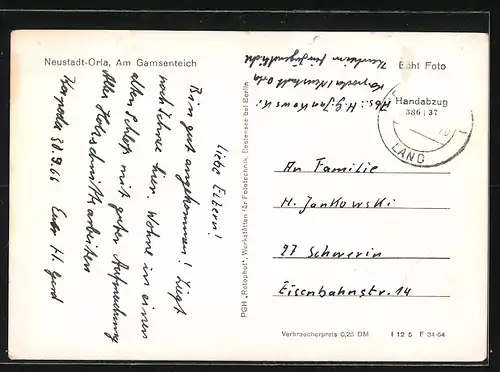 Neustadt-Orla, Am Gamsenteich
Liebe Eltern!
Bin gut angekommen! Liegt
noch Schnee hier. Wohne in einem
alten Schloß mit guter Aufmachung
Alles Holzschnittarbeiten
30.9.66 Euer H.
PGH „Rotophot“, Werkstätten für Fototechnik, Bestensee bei Berlin
Echt Foto
Handabzug
386 | 37
Abs.: H. Jankowski
Neustadt Orla
LAND
An Familie
H. Jankowski
27 Schwerin
Eisenbahnstr. 14
Verbraucherpreis 0,25 DM
I 12 5 F 34-64